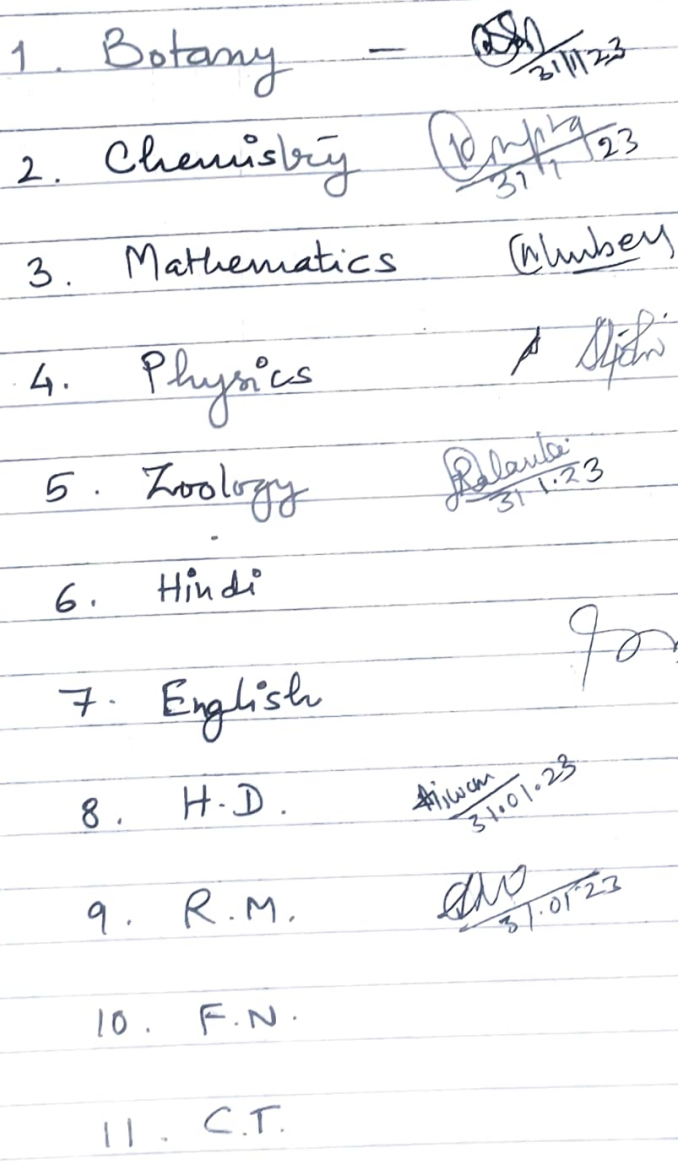 1. Botany - 31/1/23
2. Chemistry 31/1/23
3. Mathematics
4. Physics
5. Zoology 31.1.23
6. Hindi
7. English
8. H.D. 31.01.23
9. R.M. 31.01.23
10. F.N.
11. C.T.